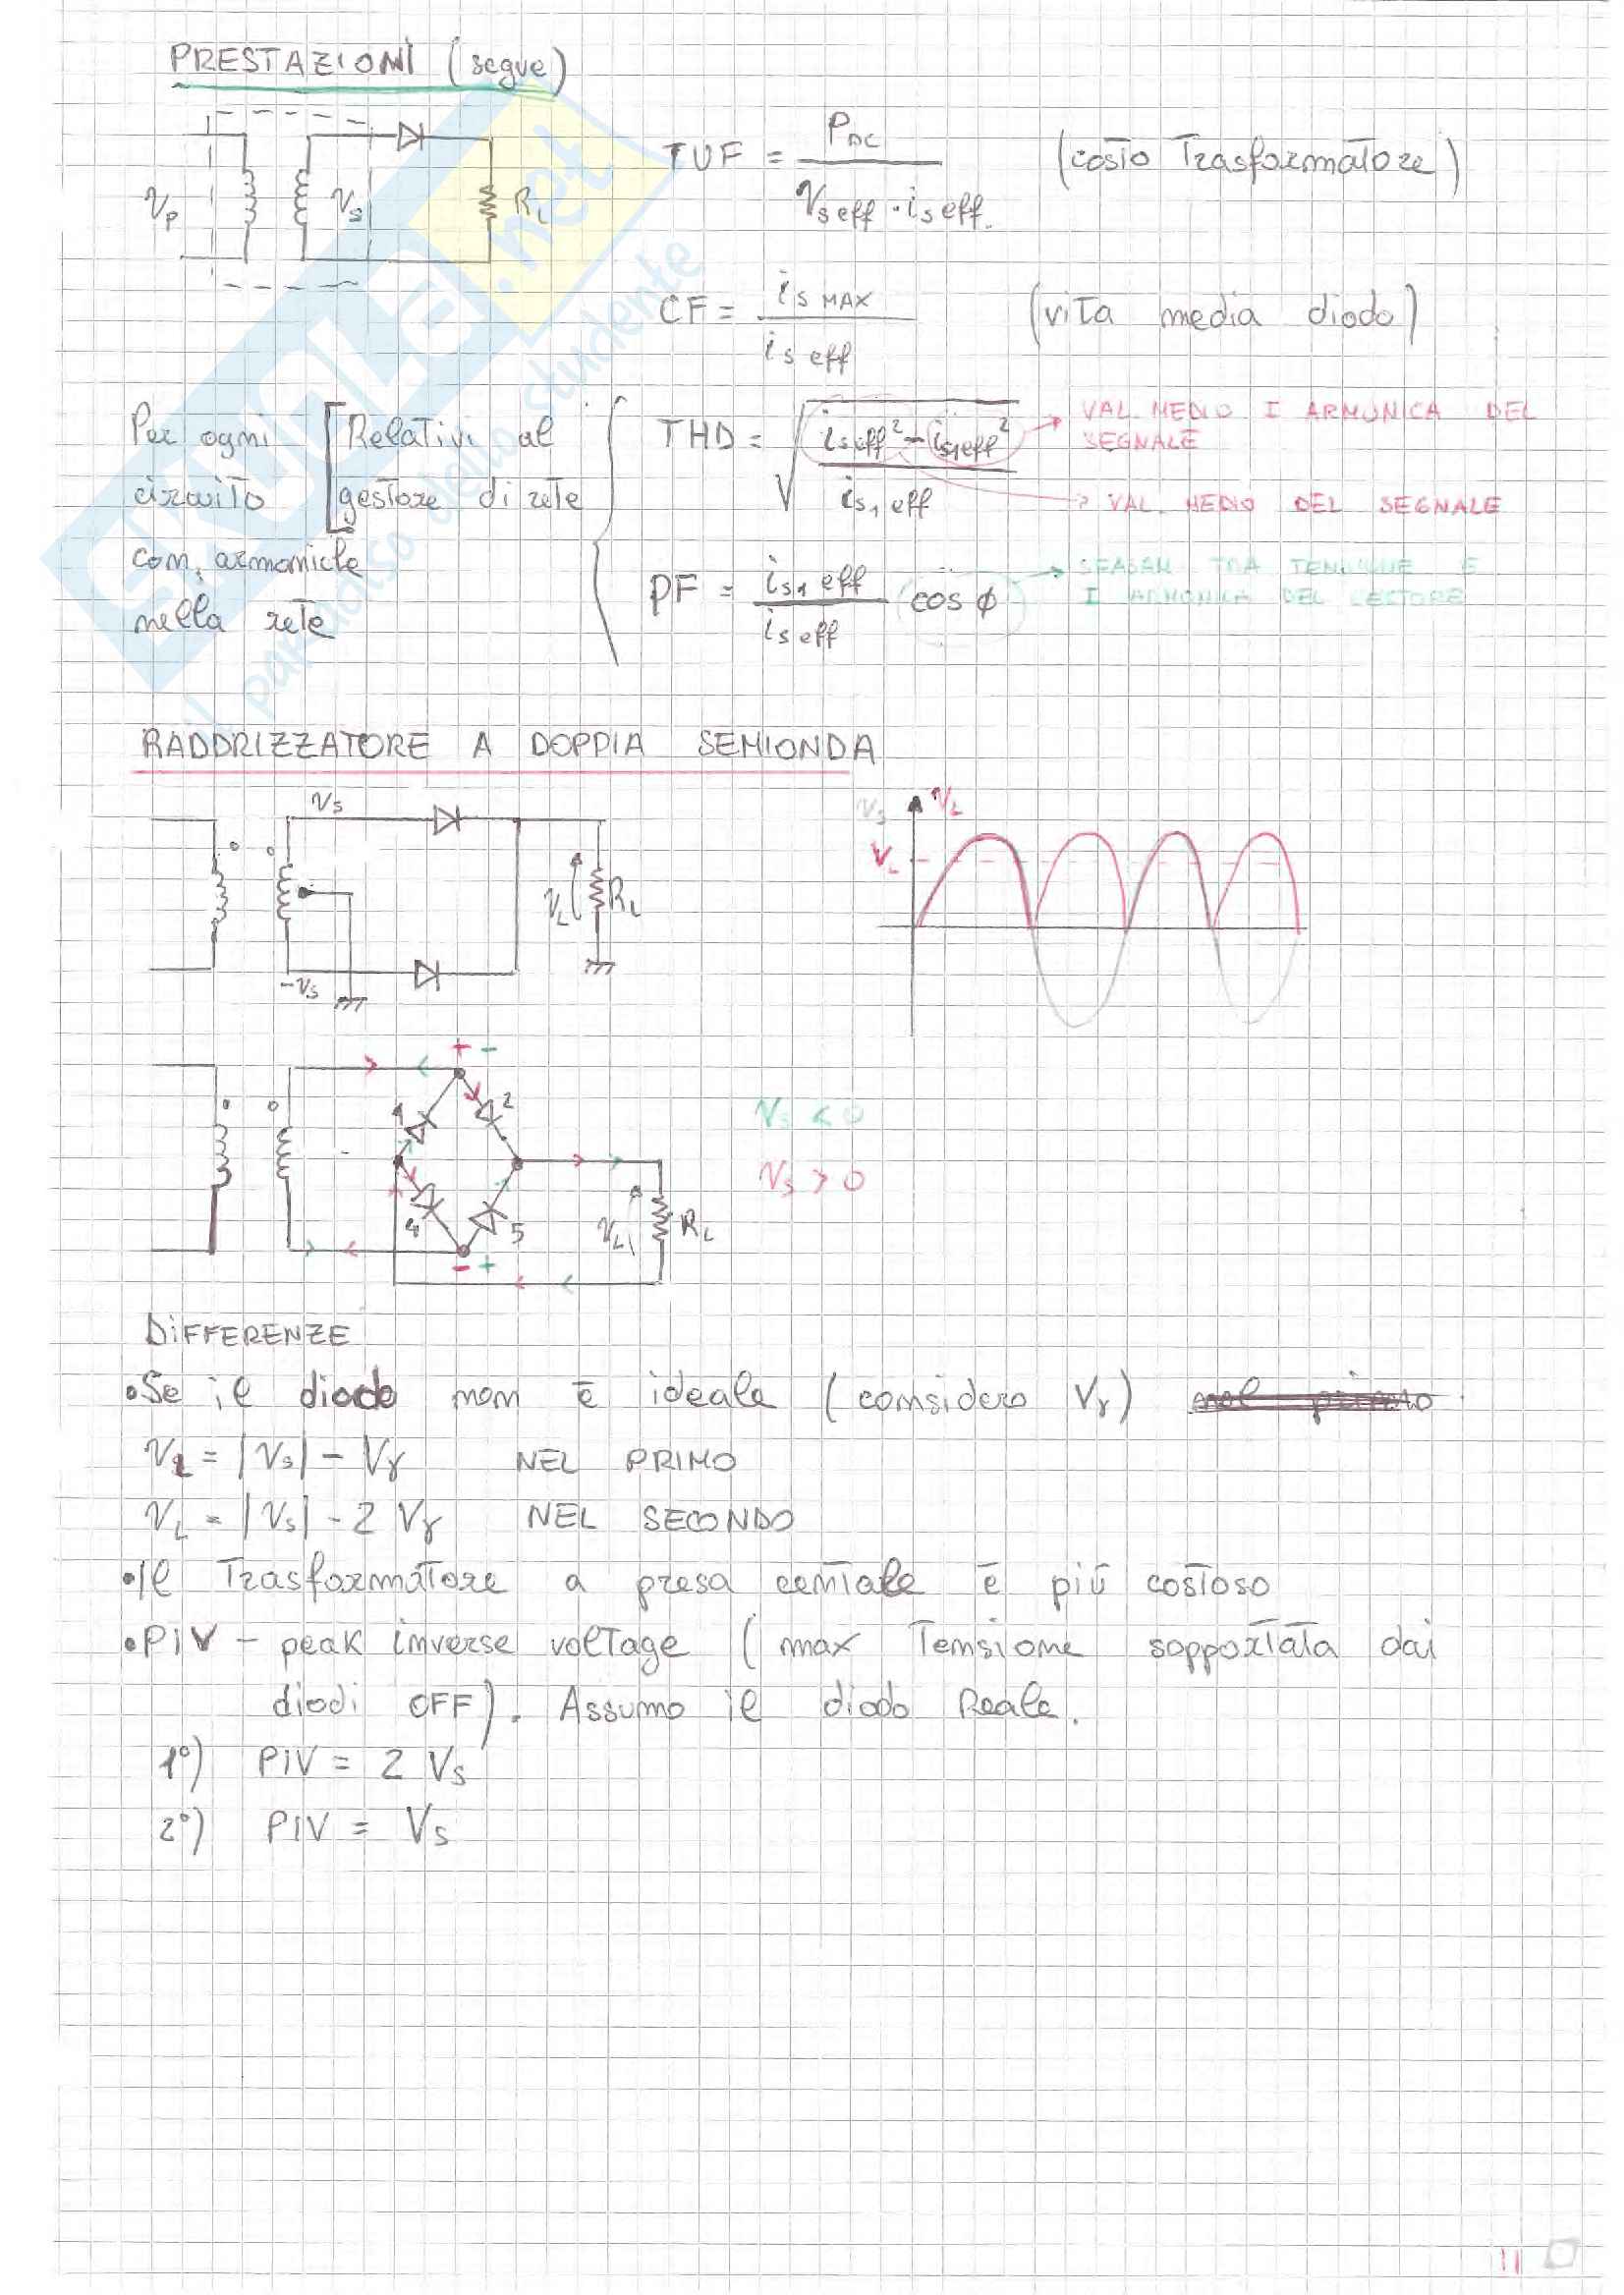 PRESTAZIONI (segue)
Vp Vs RL
TUF = PDC / Vs eff · is eff. (costo Trasformatore)
CF = is MAX / is eff (vita media diodo)
Per ogni circuito con armoniche nella rete
[Relativi al gestore di rete
THD = √ is eff² - is1 eff² / is1 eff
VAL. MEDIO I ARMONICA DEL SEGNALE
VAL. MEDIO DEL SEGNALE
PF = is1 eff / is eff cos ϕ
SFASAM TRA TENSIONE E
I ARMONICA DEL
SKUOLA.net
il paradiso dello studente
RADDRIZZATORE A DOPPIA SEMIONDA
Vs
VL RL
-Vs
Vs VL
VL
+ -
1 2
4 5
- +
VL RL
Vs < 0
Vs > 0
DIFFERENZE
•Se il diodo non è ideale (considero Vγ)
VL = |Vs| - Vγ NEL PRIMO
VL = |Vs| - 2 Vγ NEL SECONDO
•Il Trasformatore a presa centale è più costoso
•PIV - peak inverse voltage (max Tensione sopportata dai
diodi OFF). Assumo il diodo Reale.
1°) PIV = 2 Vs
2°) PIV = Vs
11